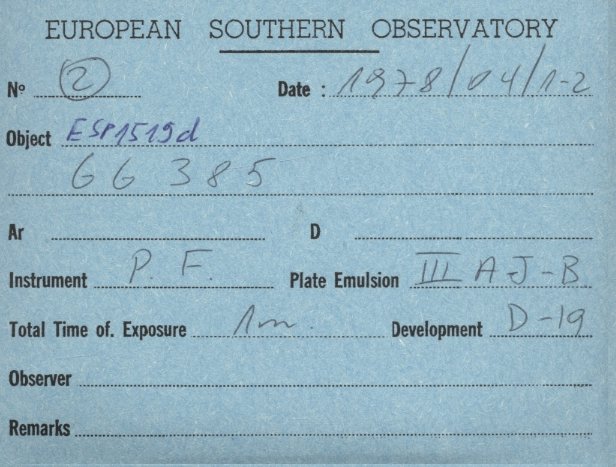 EUROPEAN SOUTHERN OBSERVATORY
Nº 2 Date : 1978/04/1-2
Object ESP1519d
66 385
Ar D
Instrument P. F. Plate Emulsion III A J-B
Total Time of. Exposure 1m. Development D-19
Observer
Remarks